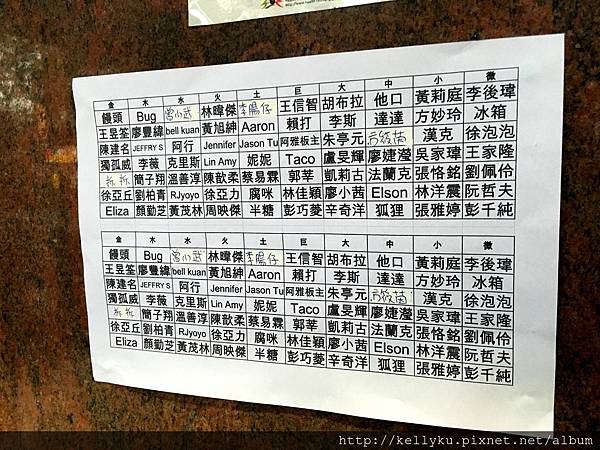 金 木 水 火 土 巨 大 中 小 微
饅頭 Bug 曾心武 林暐傑 李陽仔 王信智 胡布拉 他口 黃莉庭 李後瑋
王昱筌 廖豐緯 bell kuan 黃旭紳 Aaron 賴打 李斯 達達 方妙玲 冰箱
陳建名 JEFFRY S 阿行 Jennifer Jason Tu 阿雅板主 朱亭元 漢克 徐泡泡
獨孤威 李薇 克里斯 Lin Amy 妮妮 Taco 盧旻輝 廖婕瀅 吳家瑋 王家隆
簡子翔 溫善淳 陳歆柔 蔡易霖 郭莘 凱莉古 法蘭克 張恪銘 劉佩伶
徐亞丘 劉柏青 RJyoyo 徐亞力 腐咪 林佳穎 廖小茜 Elson 林洋震 阮哲夫
Eliza 顏勤芝 黃茂林 周映傑 半糖 彭巧菱 辛奇洋 狐狸 張雅婷 彭千純
金 木 水 火 土 巨 大 中 小 微
饅頭 Bug 曾心武 林暐傑 李陽仔 王信智 胡布拉 他口 黃莉庭 李後瑋
王昱筌 廖豐緯 bell kuan 黃旭紳 Aaron 賴打 李斯 達達 方妙玲 冰箱
陳建名 JEFFRY S 阿行 Jennifer Jason Tu 阿雅板主 朱亭元 漢克 徐泡泡
獨孤威 李薇 克里斯 Lin Amy 妮妮 Taco 盧旻輝 廖婕瀅 吳家瑋 王家隆
簡子翔 溫善淳 陳歆柔 蔡易霖 郭莘 凱莉古 法蘭克 張恪銘 劉佩伶
徐亞丘 劉柏青 RJyoyo 徐亞力 腐咪 林佳穎 廖小茜 Elson 林洋震 阮哲夫
Eliza 顏勤芝 黃茂林 周映傑 半糖 彭巧菱 辛奇洋 狐狸 張雅婷 彭千純
http://kellyku.pixnet.net/album